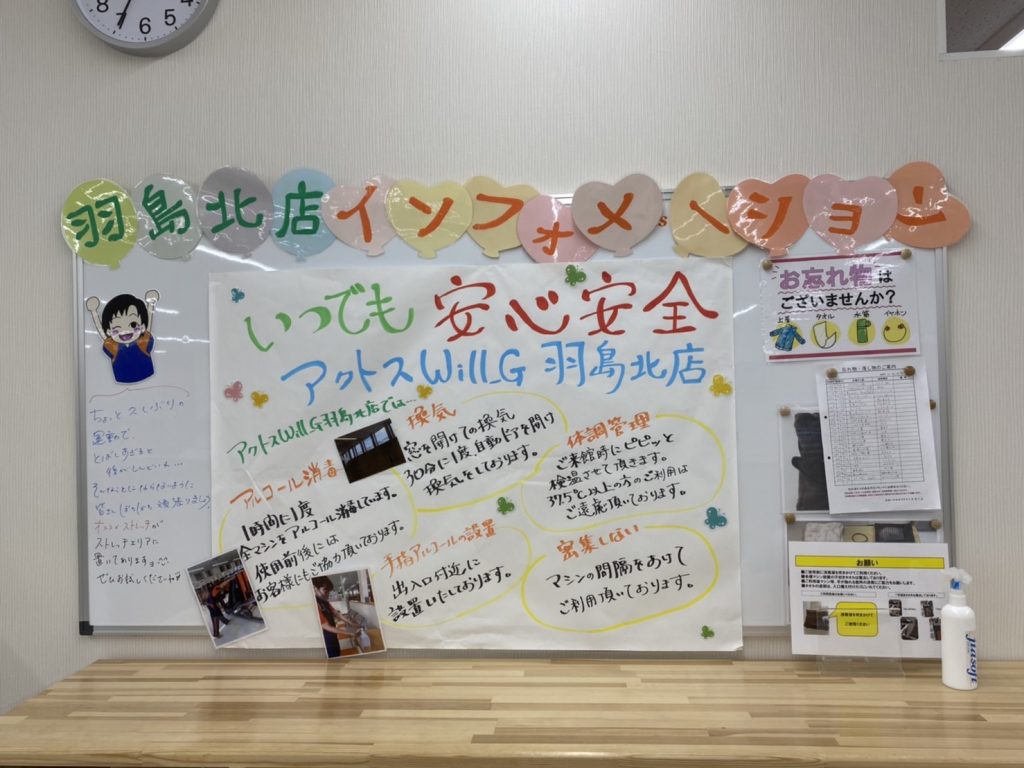 8
7
6
5
羽島北店インフォメーション
いつでも 安心安全
アクトスWill_G 羽島北店
アクトスWill_G羽島北店では…
換気
窓を開けての換気
30分に1度自動ドアを開け
換気をしております。
体調管理
ご来館時にピピッと
検温させて頂きます。
37.5℃以上の方のご利用は
ご遠慮頂いております。
アルコール消毒
1時間に1度
全マシンをアルコール消毒しています。
使用前後には
お客様にもご協力頂いております。
手指アルコールの設置
出入口付近に
設置いたしております。
密集しない
マシンの間隔をあけて
ご利用頂いております。
ちょっと久しぶりの
運動で、
とばしすぎると
後がしんどい…
そんなことにならないように
ストレッチが
ストレッチエリアに
置いてあります
ぜひお試しください
お忘れ物は
ございませんか?
上着 タオル 水筒 イヤホン
忘れ物・落し物のご案内
お願い
ご使用ください